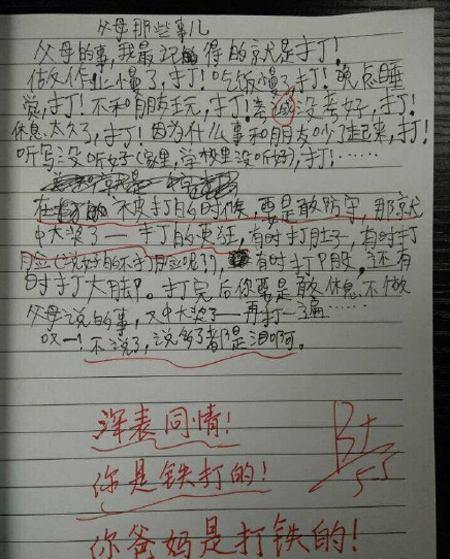 父母那些事儿
父母的事,我最记的得的就是打!
做作业慢了,打!吃饭慢了,打!晚点睡
觉,打!不和朋友玩,打!考试没考好,打!
休息太久了,打!因为什么事和朋友吵了起来,打!
听写没听好(家里,学校里没听好),打!……
在被打的时候,要是敢防守,那就
中大奖了——打的更狂,有时打肚子,有时打
脸(说好的不打脸呢?!),有时打P股,还有
时打大腿。打完后你要是敢休息不做
父母说的事,又中大奖了——再打一遍……
哎——!不说了,说多了都是泪啊。
深表同情!
你是铁打的!
你爸妈是打铁的!
B+
5.3